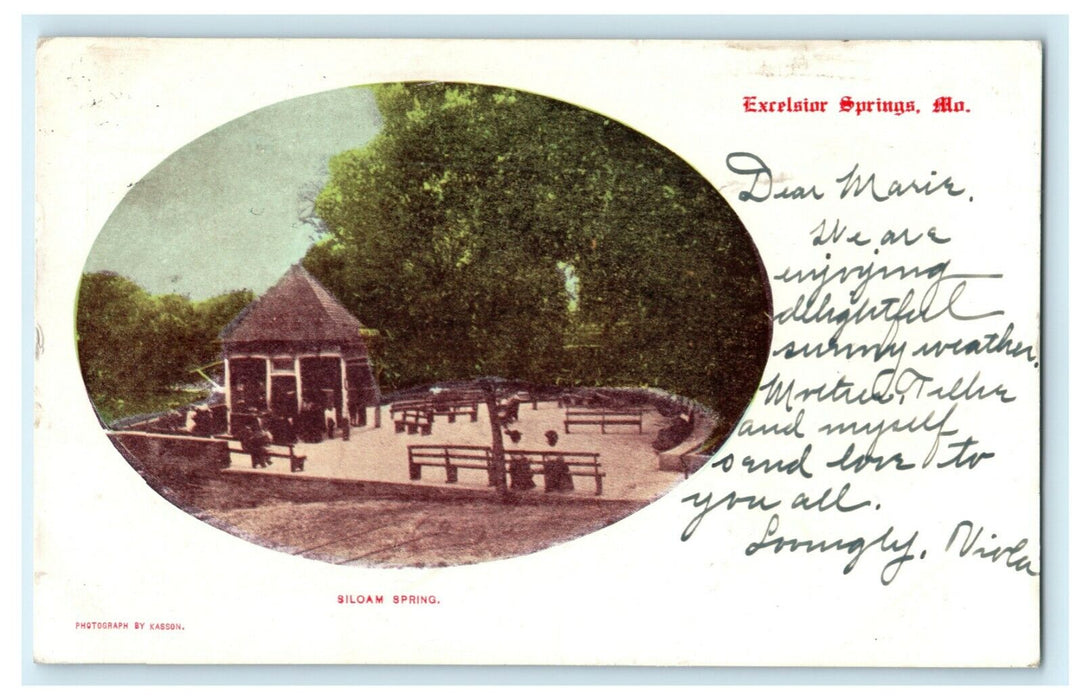 Excelsior Springs, Mo.
Dear Marie,
We are
enjoying
delightful
sunny weather.
and myself
send love to
you all.
Lovingly, Viola
SILOAM SPRING.
PHOTOGRAPH BY KASSON.